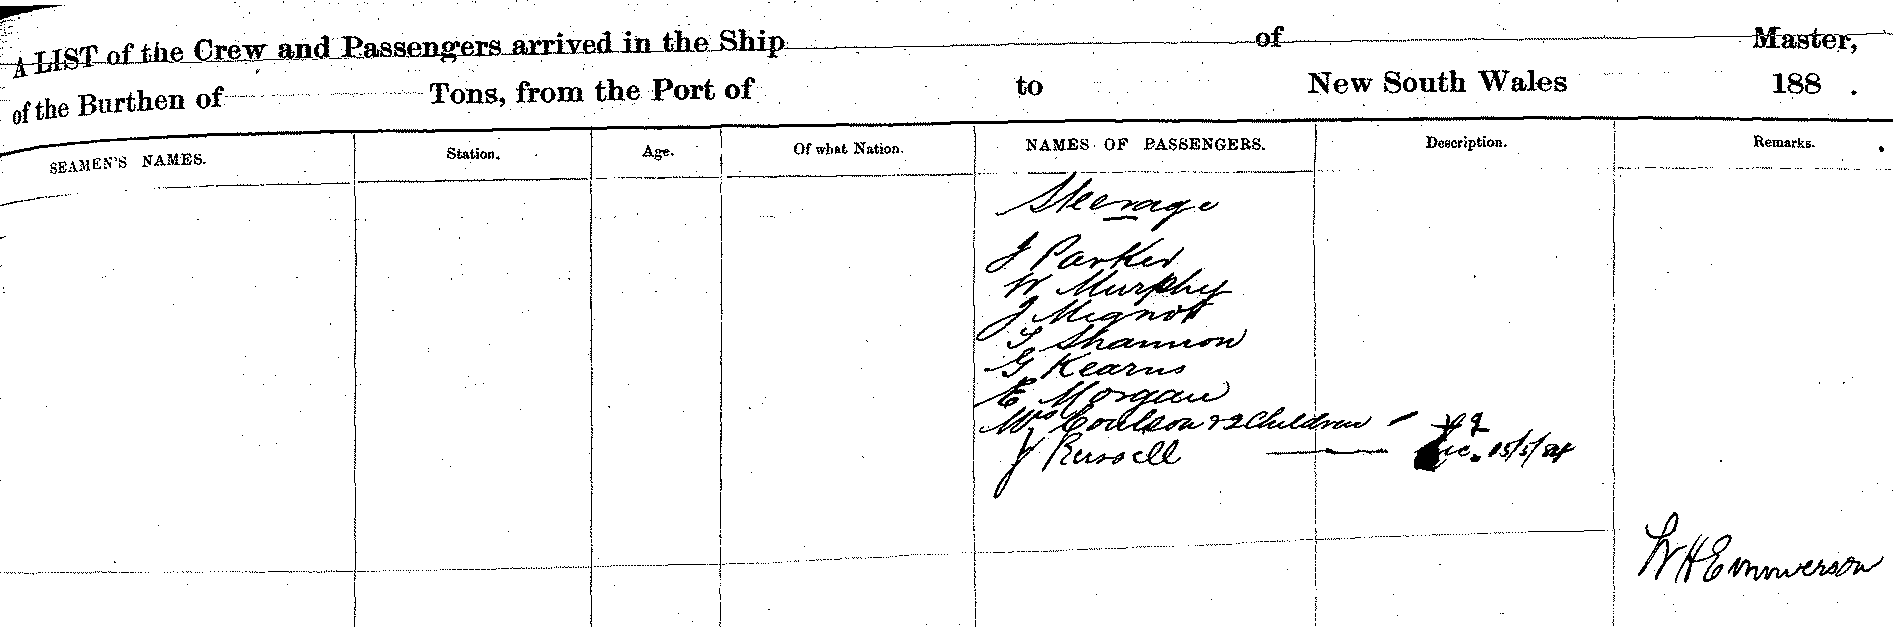 A LIST of the Crew and Passengers arrived in the Ship of Master,
of the Burthen of Tons, from the Port of to New South Wales 188 .
SEAMEN'S NAMES. Station. Age. Of what Nation. NAMES OF PASSENGERS. Description. Remarks.
Steerage
J Parker
W Murphy
J Mignot
T Shannon
G Kearns
E Morgan
Mrs Coulson & 2 Children
J Russell 15/5/84
W H Emmerson